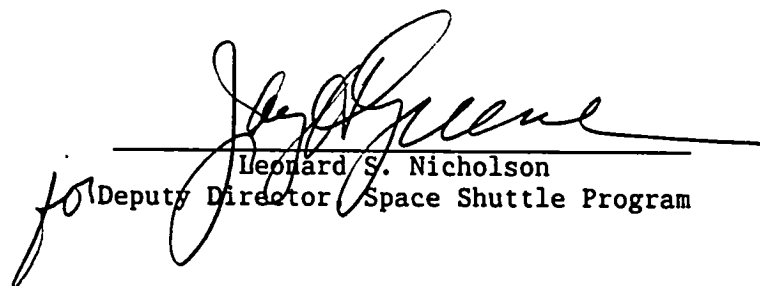 Jay H Greene
Leonard S. Nicholson
for Deputy Director, Space Shuttle Program